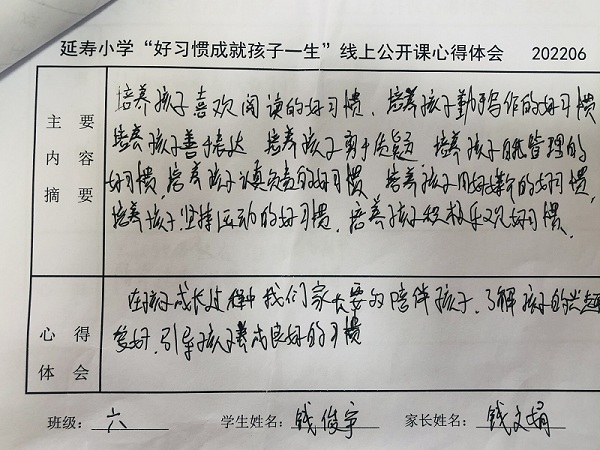 延寿小学“好习惯成就孩子一生”线上公开课心得体会 202206
主要内容摘要
培养孩子喜欢阅读的好习惯、培养孩子勤于写作的好习惯
培养孩子善于表达 培养孩子勇于质疑 培养孩子自我管理的
好习惯,培养孩子认真负责的好习惯 培养孩子用好数的好习惯,
培养孩子坚持运动的好习惯,培养孩子积极乐观好习惯.
心得体会
在孩子成长过程中我们家长要多陪伴孩子,了解孩子的兴趣
爱好,引导孩子养成良好的习惯
班级: 六 学生姓名: 钱俊宇 家长姓名: 钱文娟